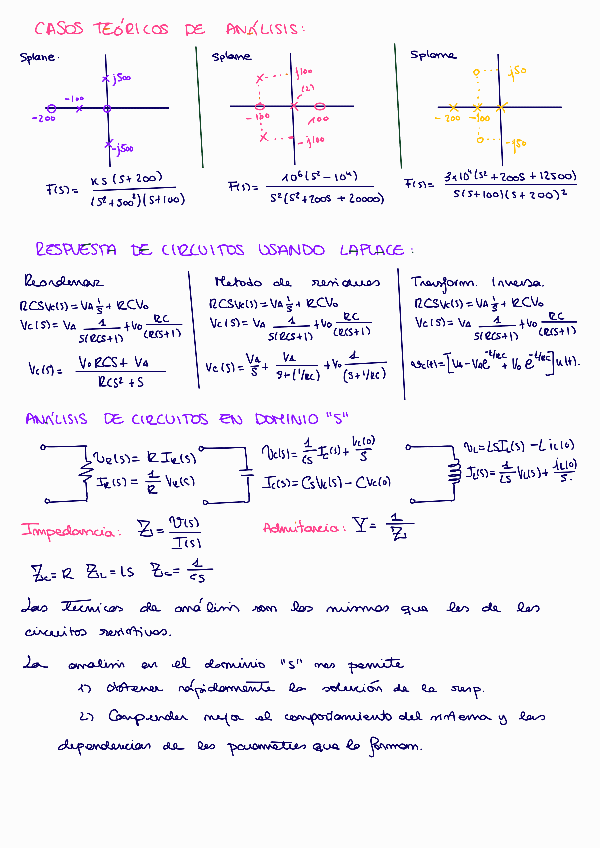 CASOS TEÓRICOS DE ANÁLISIS:
Splane.
j500
-100
-200
-j500
F(s) = KS(S+200) / (S²+500²)(S+100)
Splane
j100
(2)
-100
100
-j100
F(s) = 10⁶(S²-10⁴) / S²(S²+200S+20000)
Splane
j50
-200 -100
-j50
F(s) = 3x10⁴(S²+200S+12500) / S(S+100)(S+200)²
RESPUESTA DE CIRCUITOS USANDO LAPLACE:
Reordenar
RCSVc(s) = VA 1/S + RCVo
Vc(s) = VA 1/S(RCS+1) + Vo RC/(RCS+1)
Vc(s) = VoRCS + VA / RCS²+S
Metodo de residuos
RCSVc(s) = VA 1/S + RCVo
Vc(s) = VA 1/S(RCS+1) + Vo RC/(RCS+1)
Vc(s) = VA/S + VA/S+(1/RC) + Vo 1/(S+1/RC)
Transform. Inversa.
RCSVc(s) = VA 1/S + RCVo
Vc(s) = VA 1/S(RCS+1) + Vo RC/(RCS+1)
vc(t) = [VA - VAe^-t/RC + Vo e^-t/RC] u(t).
ANÁLISIS DE CIRCUITOS EN DOMINIO "S"
VR(s) = R IR(s)
IR(s) = 1/R VR(s)
Vc(s) = 1/CS Ic(s) + Vc(0)/S
Ic(s) = CSVc(s) - CVc(0)
VL = LSIL(s) - LiL(0)
IL(s) = 1/LS VL(s) + iL(0)/S.
Impedancia: Z = V(s)/I(s)
Admitancia: Y = 1/Z
Z = R ZL = LS Zc = 1/CS
Las técnicas de análisis son las mismas que las de los
circuitos resistivos.
La analisis en el dominio "S" nos permite
1) obtener rápidamente la solución de la resp.
2) Comprender mejor el comportamiento del sistema y las
dependencias de los parametros que lo forman.